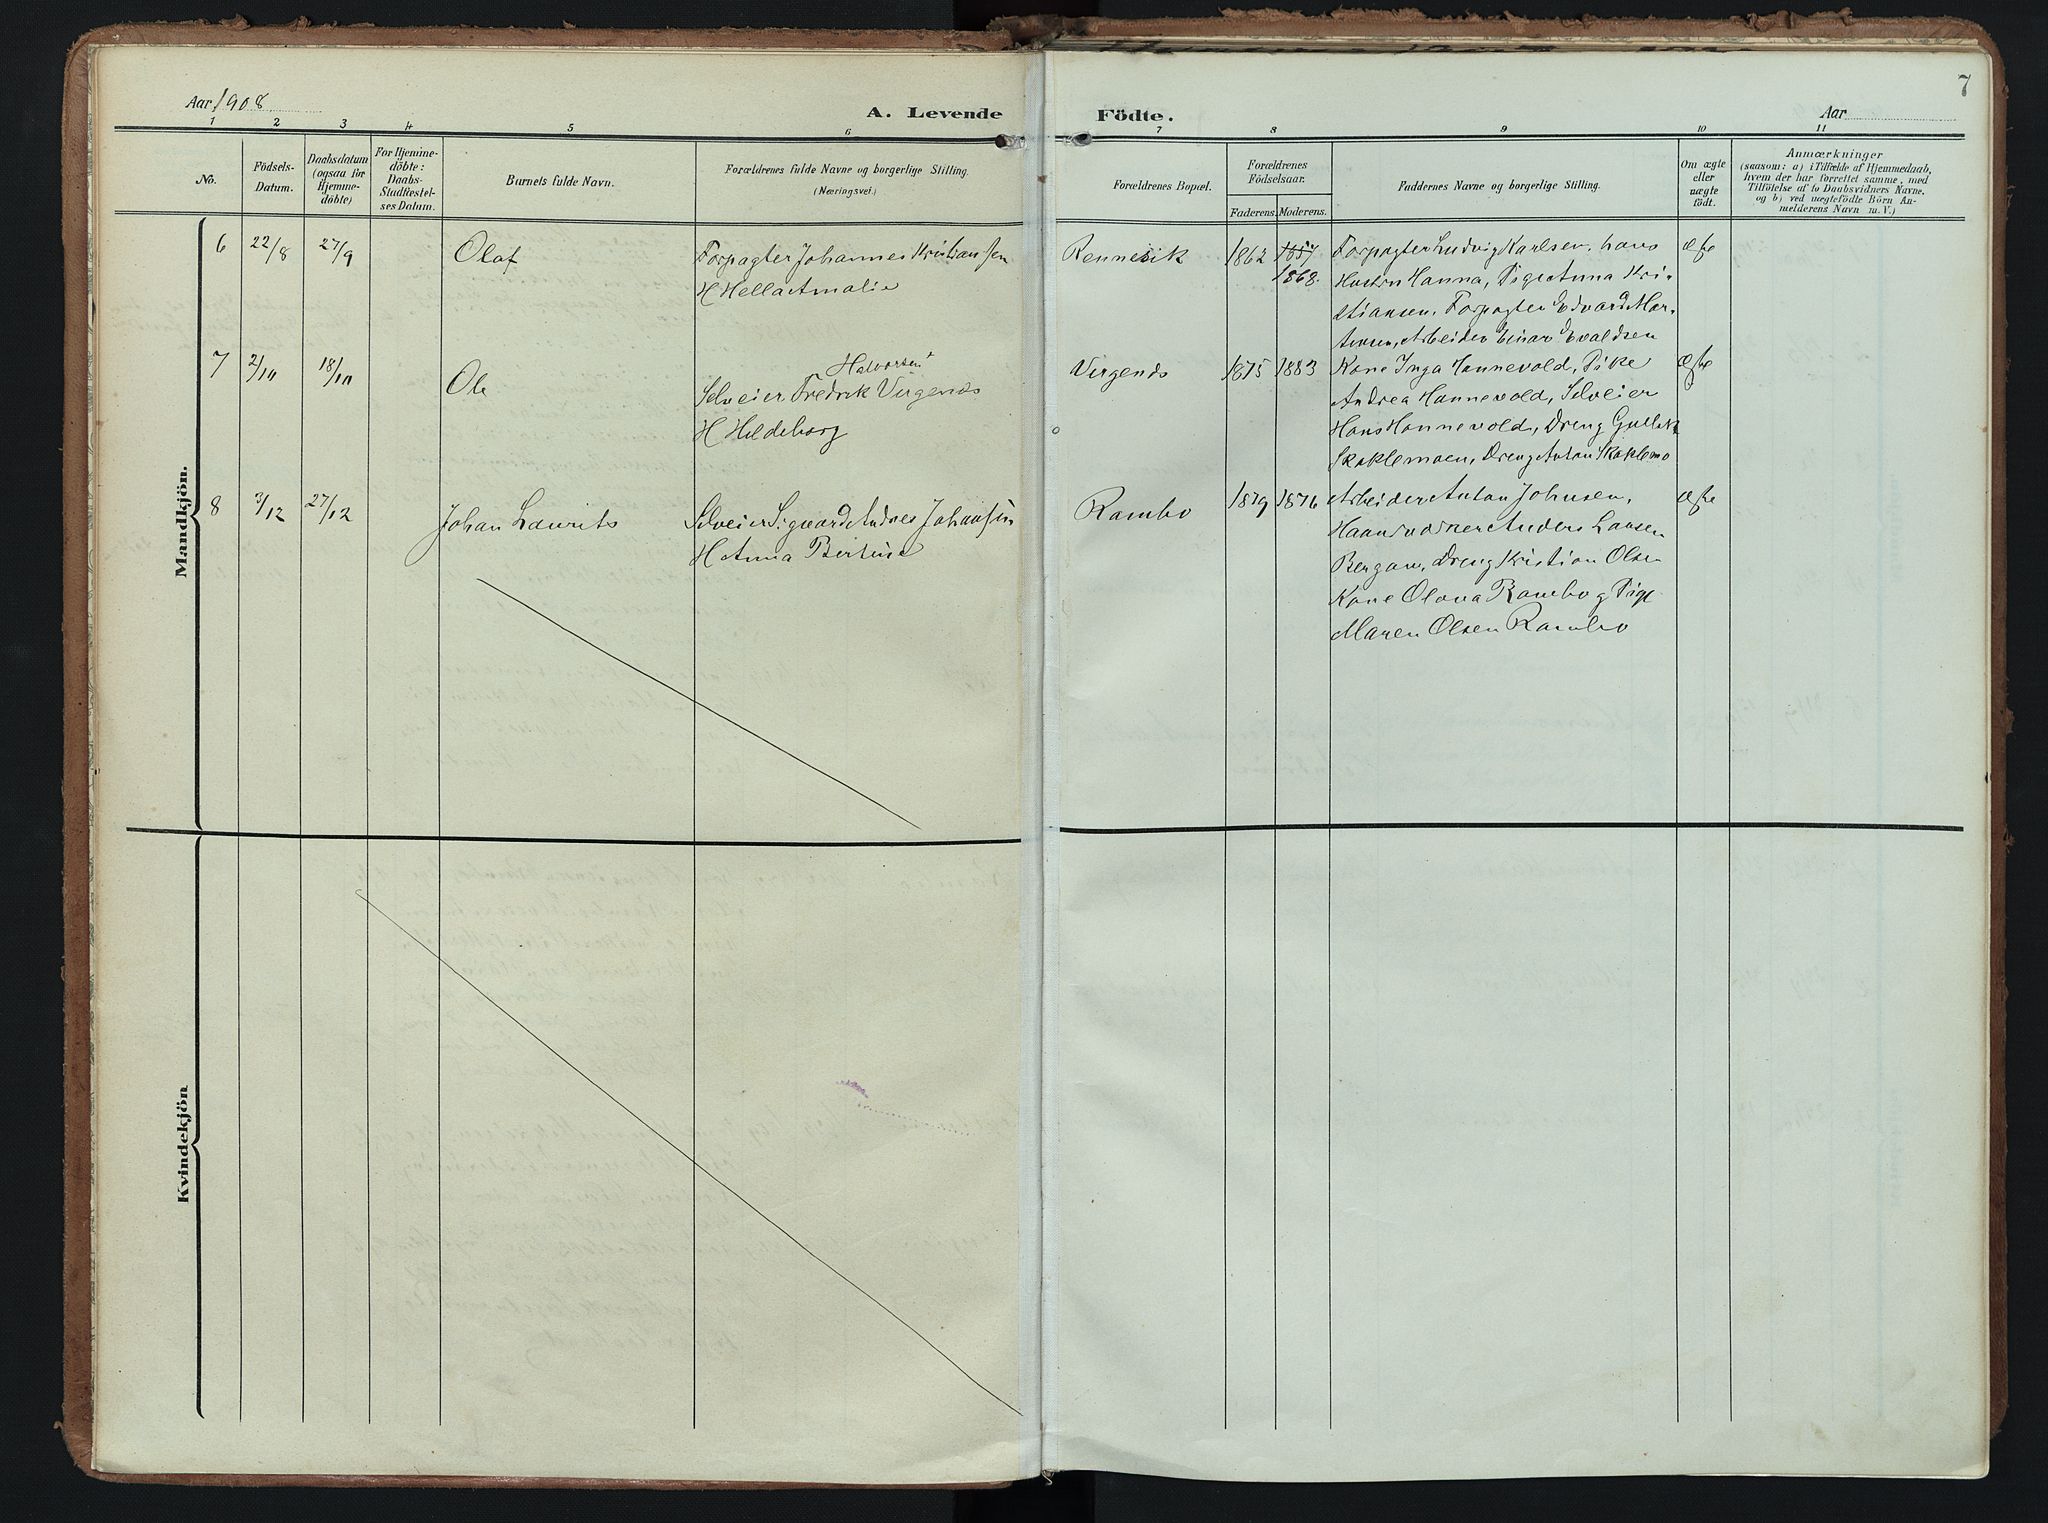 7
Aar 1908
A. Levende Födte.
Aar
1 2 3 4 5 6 7 8 9 10 11
No.
Födsels-
Datum.
Daabsdatum
(ogsaa for
Hjemme-
döbte)
For Hjemme-
döbte:
Daabs-
Stadfæstel-
ses Datum.
Barnets fulde Navn.
Forældrenes fulde Navne og borgerlige Stilling.
(Næringsvei.)
Forældrenes Bopæl.
Forældrenes
Födselsaar.
Faderens. Moderens.
Faddernes Navne og borgerlige Stilling.
Om ægte
eller
uægte
födt.
Anmærkninger
(saasom: a) i Tilfælde af Hjemmedaab,
hvem der har forrettet samme, med
Tilföielse af to Daabsvidners Navne,
og b) ved uægtefödte Börn An-
melderens Navn m. V.)
Mandkjön.
6 22/8 27/9 Olaf
Forpagter Johannes Kristiansen
H Hella Amalie
Rennesik 1862 1857
1868.
Forpagter Ludvig Karlsen, hans
Hustru Hanna, Pige Anna Kri-
stiansen, Forpagter Edvard Mar-
Arbeider Einar Evaldsen
ægte
7 2/10 18/10 Ole
Halvorsen
Selveier Fredrik Virgenes
H Hildeborg
Virgenes 1875 1883
Kone Inga Hannevold, Pike
Andrea Hannevold, Selveier
Hans Hannevold, Dreng Gullik
Skoklemoen, Dreng Anton Skoklemo
ægte
8 3/12 27/12 Johan Laurits
Selveier Sigvard Andres Johansen
H Anna Bertine
Rambo 1879 1876
Arbeider Anton Johnsen,
Anders Larsen
Bergan, Dreng Kristian Olsen
Kone Olava Rambo og Pige
Maren Olsen Rambo
ægte
Kvindekjön